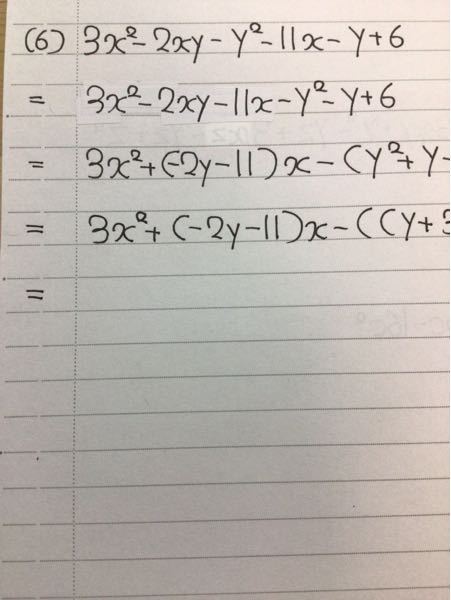 (6) 3x²-2xy-y²-11x-y+6
= 3x²-2xy-11x-y²-y+6
= 3x²+(-2y-11)x-(y²+y-
= 3x²+(-2y-11)x-((y+3
=